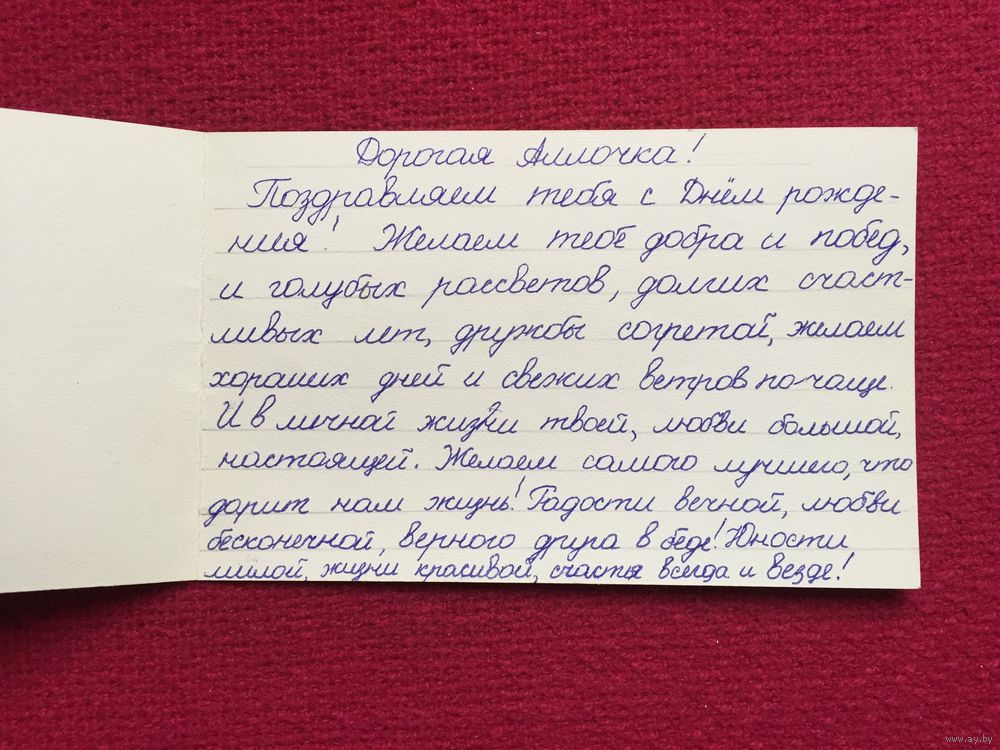 Дорогая Аллочка!
Поздравляем тебя с Днём рожде-
ния! Желаем тебе добра и побед,
и голубых рассветов, долгих счаст-
ливых лет, дружбы согретой, желаем
хороших дней и свежих ветров по-чаще.
И в личной жизни твоей, любви большой,
настоящей. Желаем самого лучшего, что
дарит нам жизнь! Радости вечной, любви
бесконечной, верного друга в беде! Юности
милой, жизни красивой, счастья всегда и везде!
www.ay.by